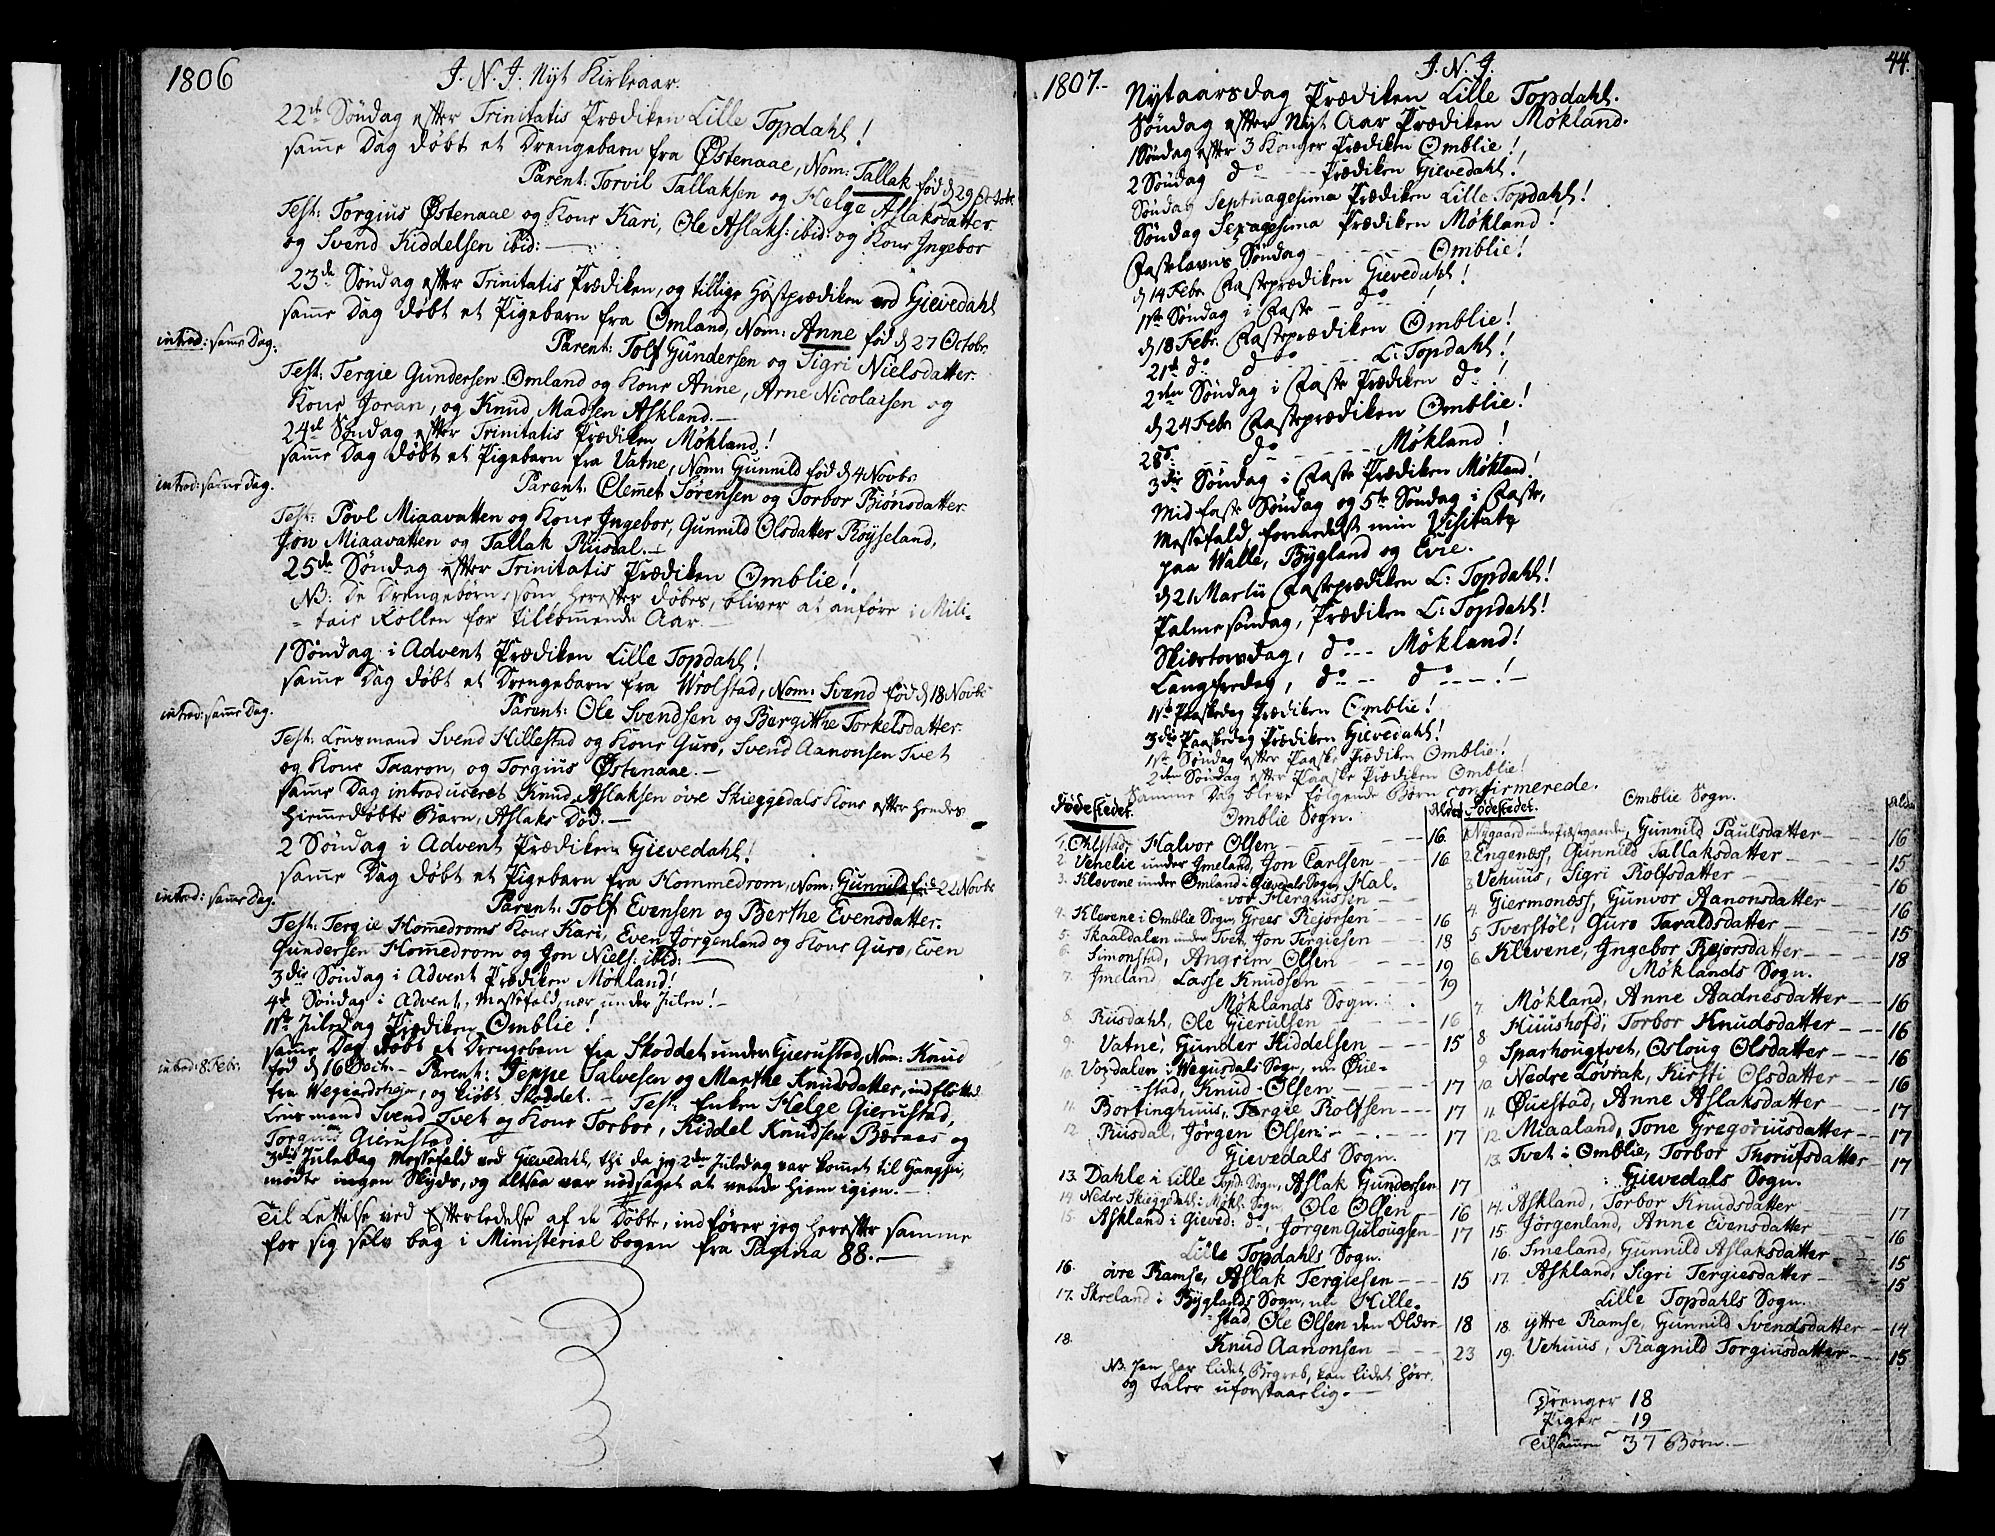 1806
J. N. J. Nyt Kirkeaar.
22de Søndag efter Trinitatis Prædiken Lille Topdahl!
samme Dag døbt et Drengebarn fra Østenaae, Nom: Tallak fød d 29 Octobr
Parent: Torvil Tallaksen og Helge Aslaksdatter
Test: Torgius Østenaae og Kone Kari, Ole Aslaks: ibid: og Kone Ingebor
og Svend Kiddelsen ibid:
23de Søndag efter Trinitatis Prædiken, og tillige Høstprædiken ved Gievedahl
samme Dag døbt et Pigebarn fra Omland, Nom: Anne fød d 27 Octobr.
introd: samme Dag.
Parent: Tolf Gundersen og Sigri Nielsdatter.
Test: Tergie Gundersen Omland og Kone Anne, Arne Nicolaisen og
Kone Joran, og Knud Madsen Askland.
24de Søndag efter Trinitatis Prædiken Møkland!
samme Dag døbt et Pigebarn fra Vatne, Nom: Gunnild fød d 4 Novbr
introd: samme Dag.
Parent: Clemet Sørensen og Torbor Biönsdatter.
Test: Povl Miaavatten og Kone Ingebor, Gunnild Olsdatter Røyseland,
Jon Miaavatten og Tallak Rusdal.
25de Søndag efter Trinitatis Prædiken Omblie!
NB: De Drengebørn, som herefter døbes, bliver at anføre i Mili-
-tair Rollen for tilkommende Aar.
1 Søndag i Advent Prædiken Lille Topdahl!
samme Dag døbt et Drengebarn fra Wrolstad, Nom: Svend fød d 18 Novbr
introd: samme Dag.
Parent: Ole Svendsen og Bergitthe Torkelsdatter.
Test: Lensmand Svend Hillestad og Kone Guro, Svend Aanonsen Tvet
og Kone Taaron, og Torgius Østenaae.
samme Dag introduceret Knud Aslaksen övre Skieggedals Kone efter hendes
hiemmedøbte Barn, Aslaks Død.
2 Søndag i Advent Prædiken Gievedahl!
samme Dag døbt et Pigebarn fra Hommedrom, Nom: Gunnild fød 22 Novbr
introd: samme Dag.
Parent: Tolf Evensen og Berthe Evensdatter.
Test: Tergie Hommedroms Kone Kari, Even Jørgenland og Kone Guro, Even
Gundersen Homedrom og Jon Niels: ibid:
3die Søndag i Advent Prædiken Møkland!
4de Søndag i Advent, Messefald, nær under Julen!
1ste Juledag Prædiken Omblie!
samme Dag døbt et Drengebarn fra Skoddet under Gierustad, Nom: Knud
introd: 8 Febr.
fød d 16 Parent: Jeppe Salvesen og Marthe Knudsdatter, indflyttet
fra og kiøbt Skoddet. Test: Enken Helge Gierustad,
Lensmand Svend Tvet og Kone Torbor, Kiddel Knudsen Beraas og
Torgius Gierustad.
3die Juledag Messefald ved Gievedahl, thi da jeg 2den Juledag var kommet til
mødte ingen Skyds, og altsaa var nødsaget at vende hiem igien.
Til Lettelse ved Efterledelse af de Døbte, indfører jeg herefter samme
for sig selv bag i Ministerial bogen fra Pagina 88.
1807.
J. N. J.
44.
Nytaarsdag Prædiken Lille Topdahl.
Søndag efter Nyt Aar Prædiken Møkland.
1 Søndag efter 3 Konger Prædiken Omblie!
2 Søndag do Prædiken Gievedahl!
Søndag Septuagesima Prædiken Lille Topdahl!
Søndag Sexagesima Prædiken Møkland!
Fastelavns Søndag Omblie!
d 14 Febr Fasteprædiken Gievedahl!
1ste Søndag i Faste do !
d 18 Febr. Fasteprædiken Omblie!
21de do do L: Topdahl!
2den Søndag i Faste Prædiken do !
d 24 Febr Fasteprædiken Omblie!
28 do Møkland!
3die Søndag i Faste Prædiken Møkland!
Midfaste Søndag og 5te Søndag i Faste,
Messefald, formedelst min Visitats
paa Walle, Bygland og Evie.
d 21 Martii Fasteprædiken L: Topdahl!
Palmesøndag, Prædiken L: Topdahl!
Skiertorsdag, do Møkland!
Langfredag, do do !
1ste Paaskedag Prædiken Omblie!
3die Paaskedag Prædiken Gievedahl!
1ste Søndag efter Paaske Prædiken Omblie!
2den Søndag efter Paaske Prædiken Omblie!
Samme Dag bleve følgende Børn confirmerede.
Fødestedet. Omblie Sogn. Alder
1. Ohlstad, Halvor Olsen 16.
2. Vehelie under Imeland, Jon Carlsen 16
3. Klevene under Omland i Gievedals Sogn, Hal-
vor Herguusen
4. Klevene i Omblie Sogn, Grees Rejorsen 16
5. Skaaldalen under Tvet, Jon Tergiesen 18
6. Simonstad, Angrim Olsen 19
7. Imeland, Lasse Knudsen 19
Møklands Sogn.
8. Rusdahl, Ole Gierulsen 16
9. Vatne, Gunder Kiddelsen 15
10. Vordalen i Wegusdals Sogn, nu Øue-
stad, Knud Olsen 17
11. Bortinghuus, Tergie Rolfsen 17
12. Rusdal, Jørgen Olsen 17
Gievedals Sogn.
13. Dahle i Lille Topd: Sogn, Aslak Gundersen 17
14. Nedre Skieggedahl i Møkl: Sogn, Ole Olsen 16
15. Askland i Gieved: do, Jørgen Gulougsen 17
Lille Topdahls Sogn.
16. övre Ramse, Aslak Tergiesen 15
17. Skreland i Byglands Sogn, nu Hille-
stad, Ole Olsen den Ældre 18
18. Knud Aanonsen 23
NB. han har lidet Begreb, kan lidet høre,
og taler uforstaaelig.
Fødestedet. Omblie Sogn. Alder
1. Nygaard under Præstgaarden, Gunnild Paulsdatter 16
2. Engenæss, Gunnild Tallaksdatter 15
3. Vehuus, Sigri Rolfsdatter 16
4. Giermonæss, Gunvor Aanonsdatter 16
5. Tverstøl, Guro Taraldsdatter 15
6. Klevene, Ingebor Rejorsdatter 18
Møklands Sogn.
7. Møkland, Anne Aadnesdatter 16
8. Huushofd, Torbor Knudsdatter 16
9. Sparhougtvet, Osloug Olsdatter 16
10. Nedre Lovrak, Kirsti Olsdatter 16
11. Øuestad, Anne Aslaksdatter 17
12. Miaaland, Tone Gregoriusdatter 17
13. Tvet i Omblie, Torbor Thorufsdatter 17
Gievedals Sogn.
14. Askland, Torbor Knudsdatter 17
15. Jørgenland, Anne Evensdatter 16
16. Imeland, Gunnild Aslaksdatter 15
17. Askland, Sigri Tergiesdatter 15
Lille Topdahls Sogn.
18. yttre Ramse, Gunnild Svendsdatter 14
19. Vehuus, Ragnild Torgiusdatter 15
Drenger 18
Piger 19
Tilsammen 37 Børn.